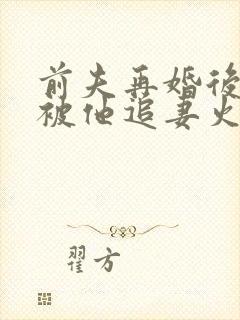 前夫再婚後
被他追妻火
翟方